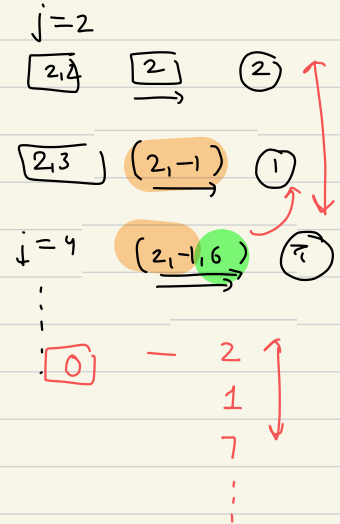 j = 2
2,2 2 2
2,3 (2,-1) 1
j = 4 (2,-1,6) 7
0 — 2
1
7